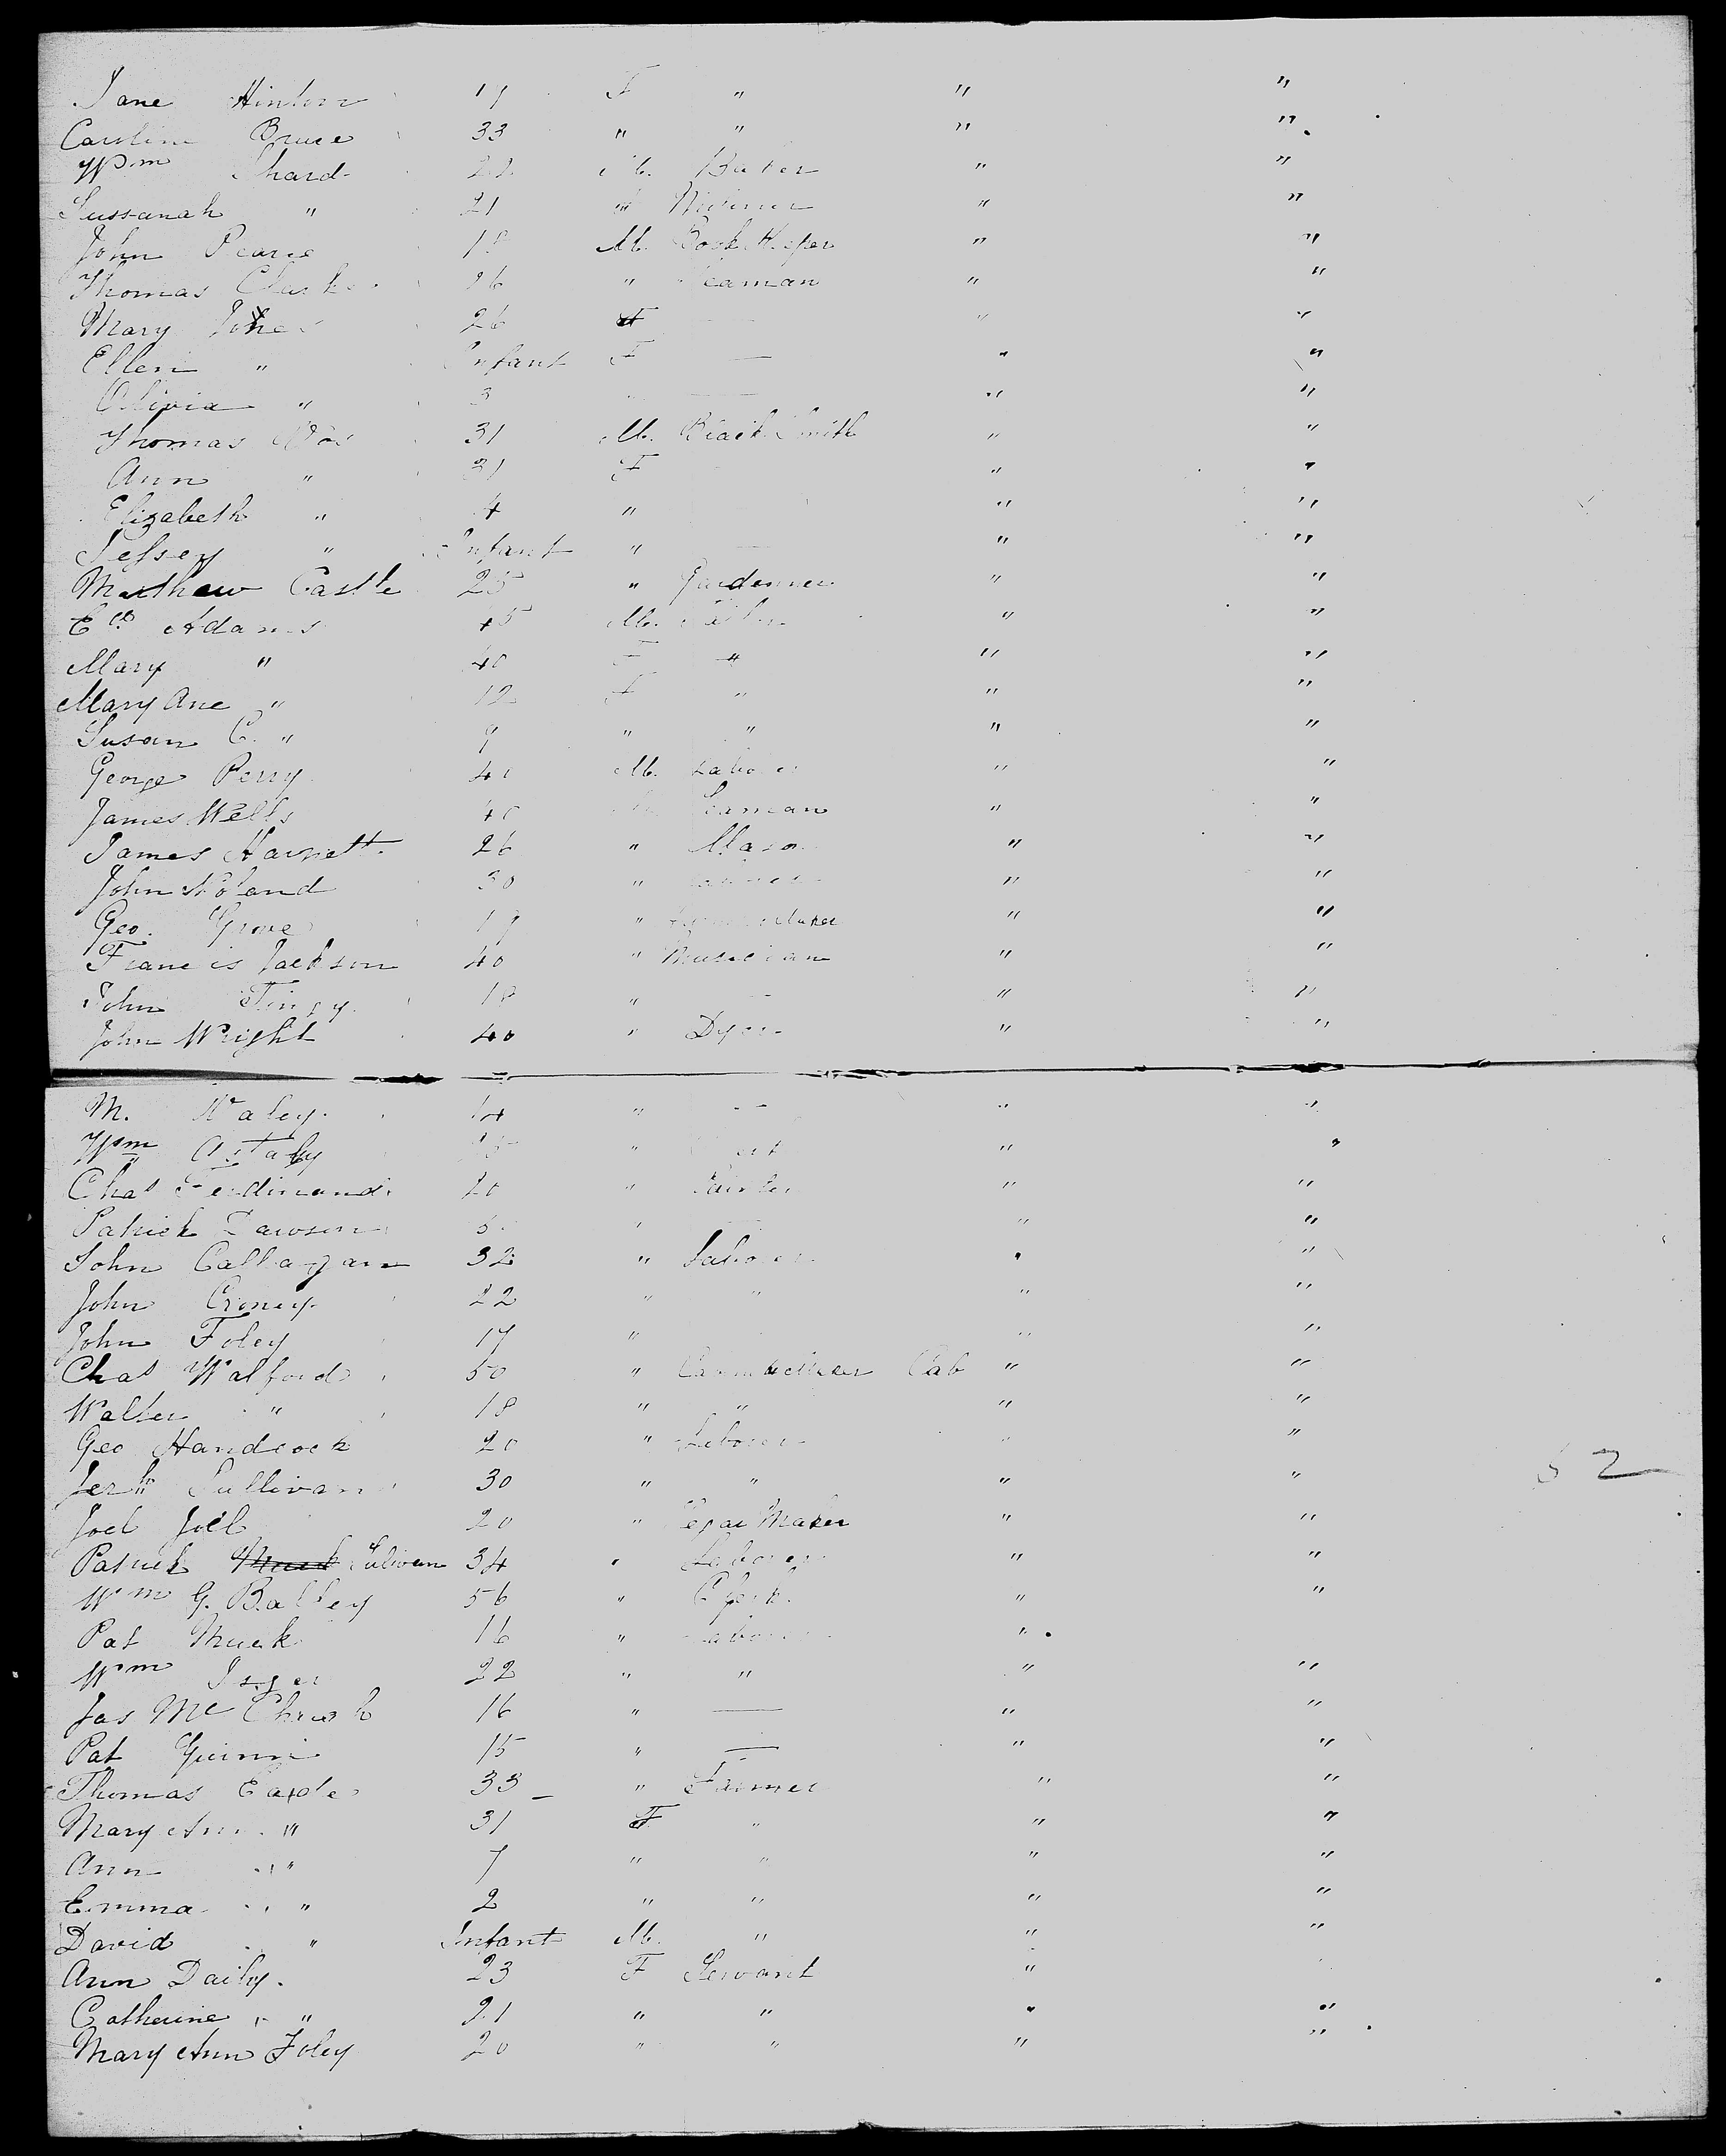 Jane Hinton 19 F " " "
Caroline Bruce 33 " " " "
Wm Shard 22 M. Baker " "
Sussanah " 21 " "
John Pearce 18 M. Book Keeper " "
Thomas Clark 26 " Seaman " "
Mary Jones 26 F " "
Ellen " Infant F — " "
Olivia " 3 — " "
Thomas 31 M. Black Smith " "
Ann " 31 F " "
Elizabeth " 4 " " "
Jessey " Infant " — " "
Mathew Castle 25 " Gardenner " "
Ed. Adams 45 M. " "
Mary " 40 F " " "
Mary Ane " 12 F " " "
Susan C. " 9 " " " "
George Perry 40 M. Laborer " "
James Wells 40 Seaman " "
James Harnett 26 " Mason " "
John Noland 30 " " "
Geo. Grove 19 " Maker " "
Francis Jackson 40 " Musician " "
John Tingy 18 " — " "
John Wright 40 " Dyer " "
M. Waley 14 " — " "
Wm Astaby " " "
Chas Ferdinand 20 " Painter " "
Patrick Dawson " " "
John Callagan 32 " Laborer " "
John Croney 22 " " " "
John Foley 17 " " "
Chas Walford 50 " Cab " "
Walter " 18 " " " "
Geo Handcock 20 " Laborer " "
Jerh Sullivan 30 " " " " 52
Joel Joel 20 " Segar Maker " "
Patrick Sulivan 34 " Laborer " "
Wm G. Balley 56 " Clerk " "
Pat Muck 16 " Laborer "
Wm 22 " " " "
Jas Mc 16 " — " "
Pat Guinn 15 " — " "
Thomas Eade 33 " Farmer " "
Mary Ann " 31 F " " "
Ann " 7 " " " "
Emma " 2 " " " "
David " Infant M. " " "
Ann Daily. 23 F Servant "
Catherine " 21 " " " "
Mary Ann Foley 20 " " " "